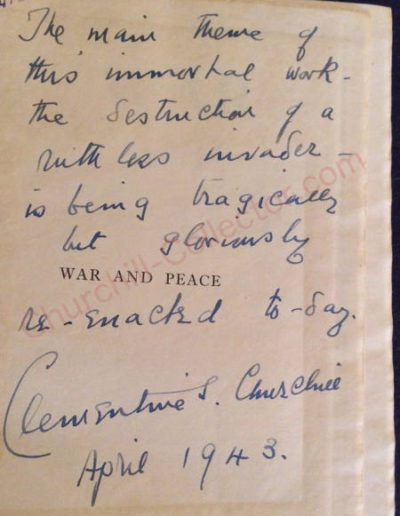 The main theme of
this immortal work -
the destruction of a
ruthless invader -
is being tragically
but gloriously
WAR AND PEACE
re-enacted to-day.
Clementine S. Churchill
April 1943.
Churchill-Collector.com